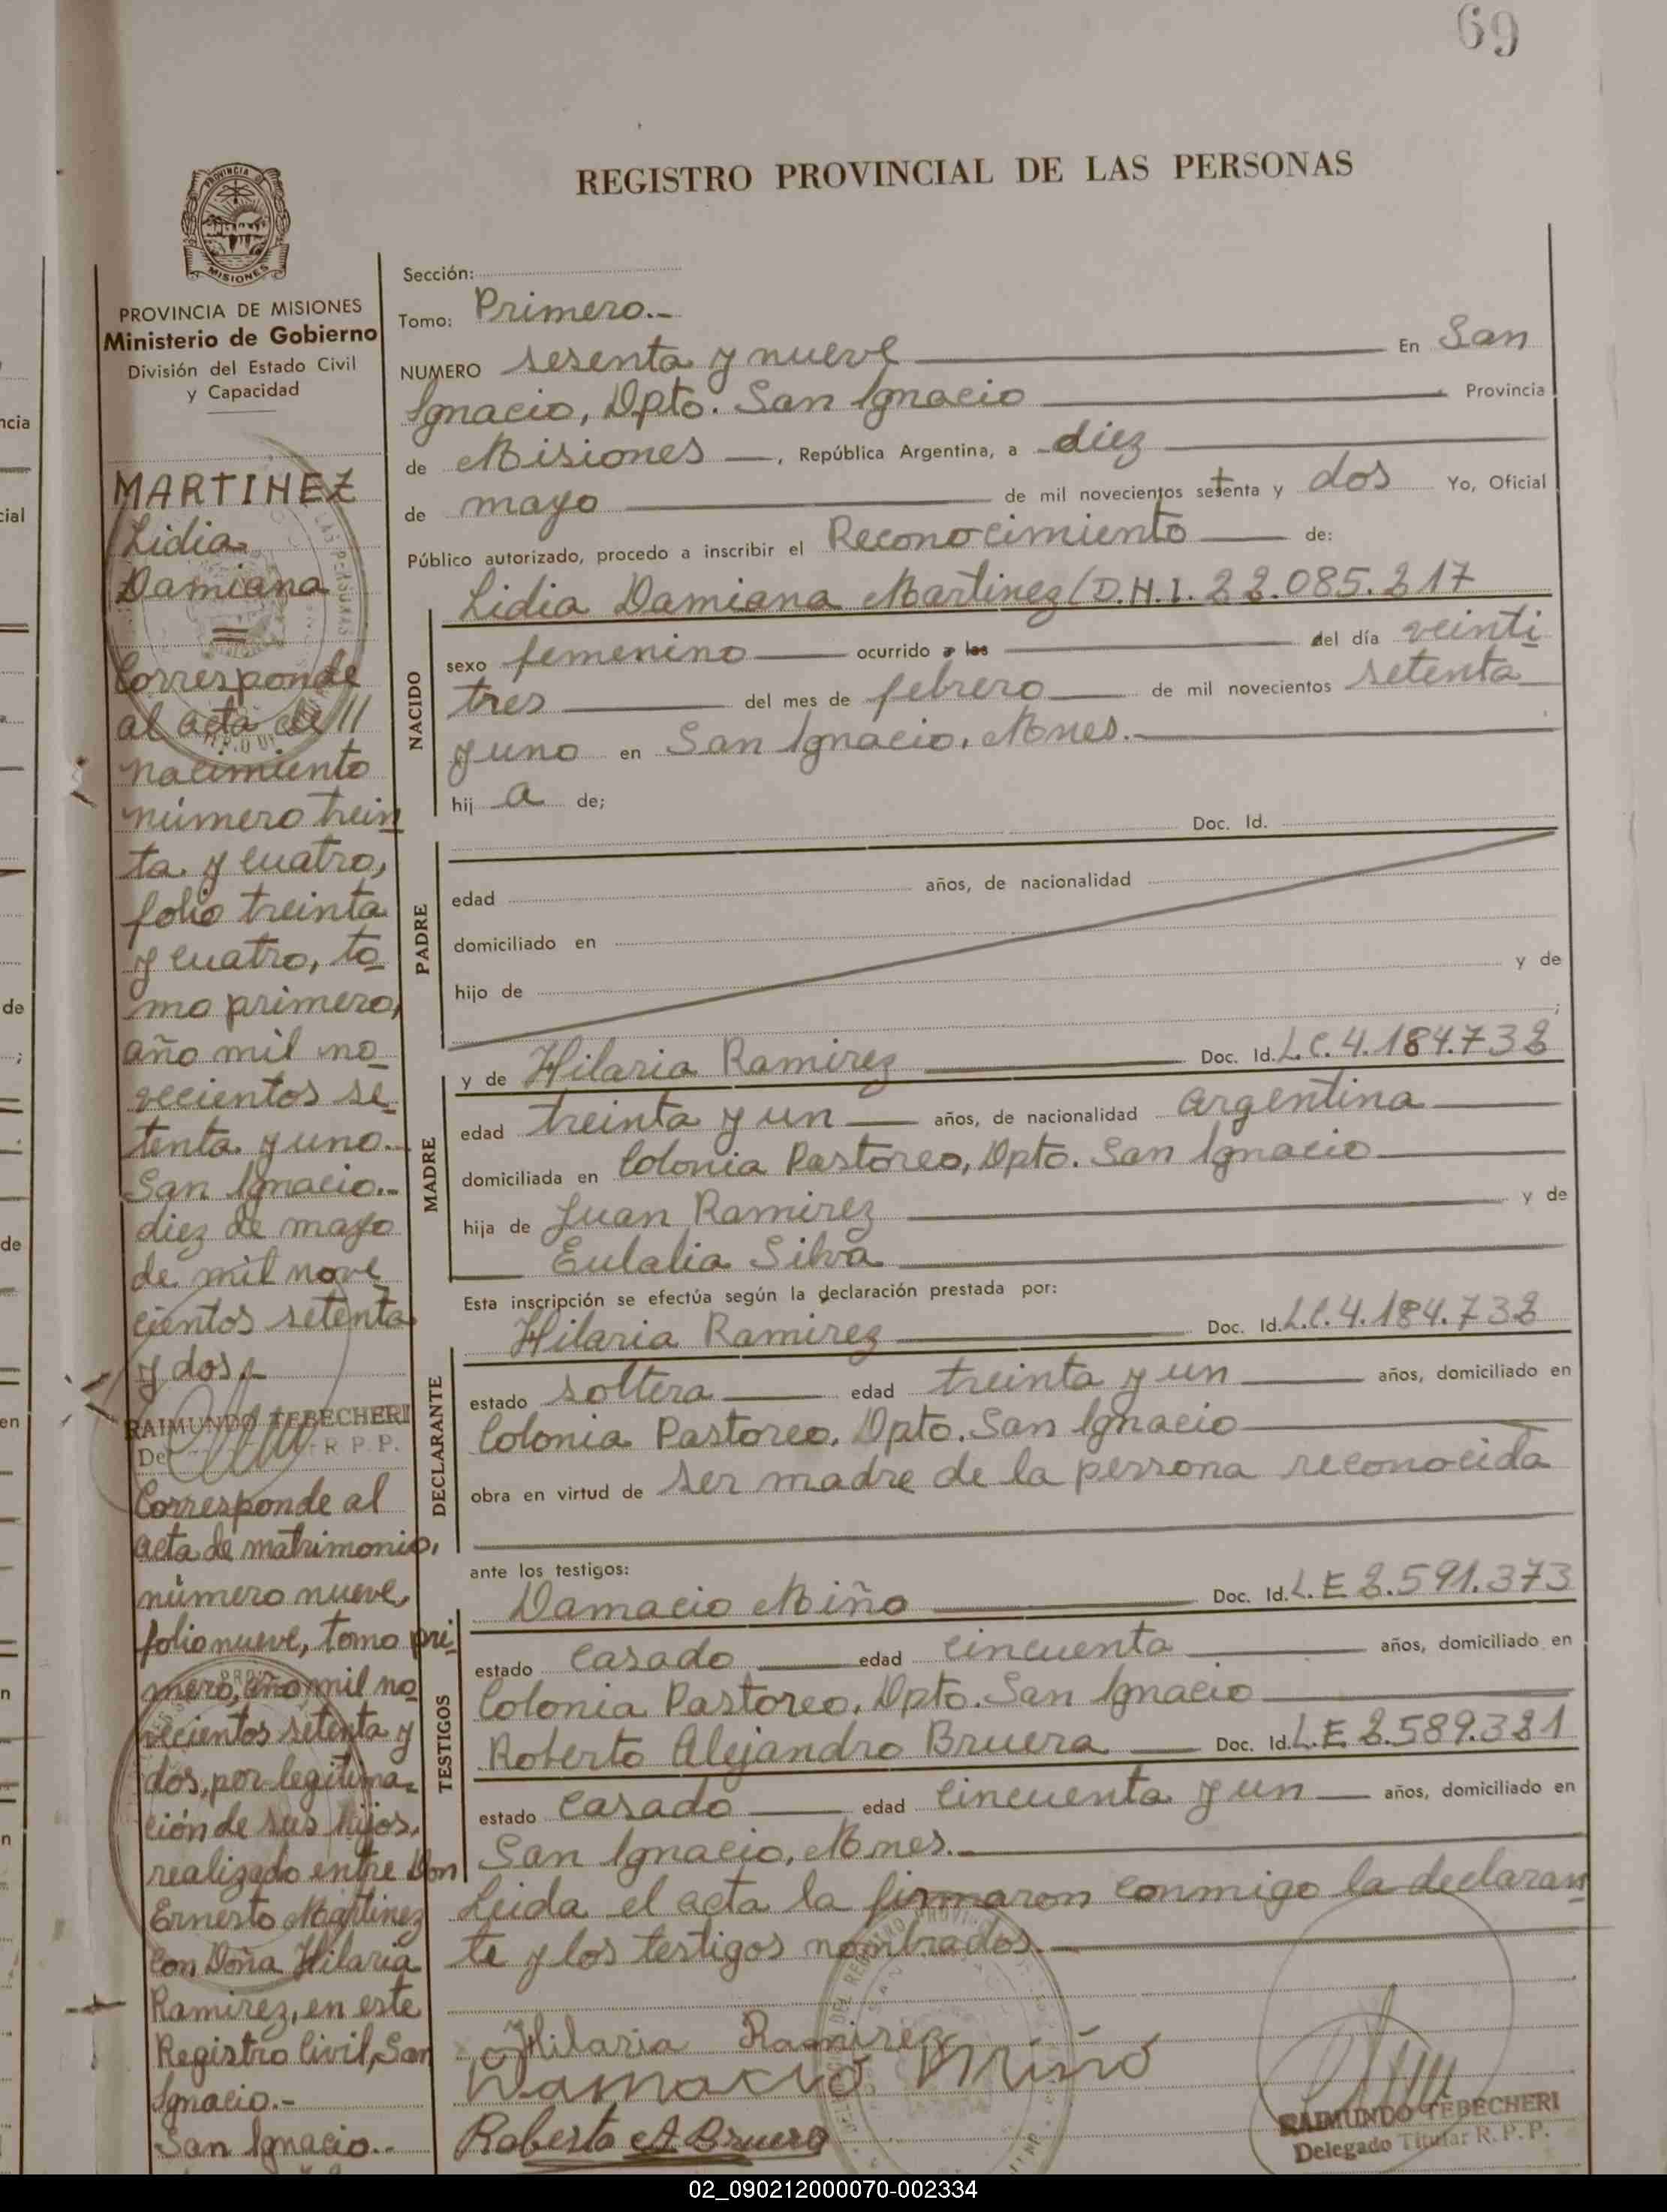 69
REGISTRO PROVINCIAL DE LAS PERSONAS
PROVINCIA
MISIONES
PROVINCIA DE MISIONES
Ministerio de Gobierno
División del Estado Civil
y Capacidad
MARTINEZ
Lidia
Damiana
=
Corresponde
al acta de
nacimiento
número trein
ta y cuatro,
folio treinta
y cuatro, to
mo primero,
año mil no
vecientos se
tenta y uno.-
San Ignacio.-
diez de mayo
de mil nove
cientos setenta
y dos.-
RAIMUNDO TEBECHERI
R. P. P.
Corresponde al
acta de matrimonio,
número nueve,
folio nueve, tomo pri
mero, año mil no
vecientos setenta y
dos, por legitima-
ción de sus hijos,
realizado entre Don
Ernesto Martinez
con Doña Hilaria
Ramirez, en este
Registro Civil, San
Ignacio.-
San Ignacio.-
Sección:
Tomo: Primero.-
NUMERO sesenta y nueve En San
Ignacio, Dpto. San Ignacio Provincia
de Misiones, República Argentina, a diez
de mayo de mil novecientos setenta y dos Yo, Oficial
Público autorizado, procedo a inscribir el Reconocimiento de:
NACIDO
Lidia Damiana Martinez (D.N.I. 22.085.217
sexo femenino ocurrido a las del día veinti
tres del mes de febrero de mil novecientos setenta
y uno en San Ignacio, Mnes.-
hij a de;
PADRE
Doc. Id.
edad años, de nacionalidad
domiciliado en
hijo de y de
;
MADRE
y de Hilaria Ramirez Doc. Id. L.C. 4.184.732
edad treinta y un años, de nacionalidad argentina
domiciliada en Colonia Pastoreo, Dpto. San Ignacio
hija de Juan Ramirez y de
Eulalia Silva
Esta inscripción se efectúa según la declaración prestada por:
DECLARANTE
Hilaria Ramirez Doc. Id. L.C. 4.184.732
estado soltera edad treinta y un años, domiciliado en
Colonia Pastoreo, Dpto. San Ignacio
obra en virtud de ser madre de la persona reconocida
ante los testigos:
TESTIGOS
Damacio Miño Doc. Id. L.E 2.591.373
estado casado edad cincuenta años, domiciliado en
Colonia Pastoreo, Dpto. San Ignacio
Roberto Alejandro Bruera Doc. Id. L.E. 2.589.321
estado casado edad cincuenta y un años, domiciliado en
San Ignacio, Mnes.-
Leida el acta la firmaron conmigo la declaran
te y los testigos nombrados.-
Hilaria Ramirez
Damacio Miño
Roberto A Bruera
RAIMUNDO TEBECHERI
Delegado Titular R. P. P.
02_090212000070-002334